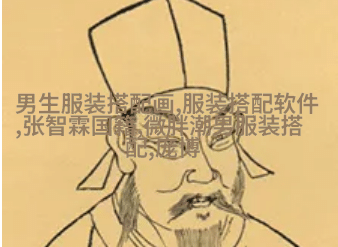 男生服装搭配画,服装搭配软件
,张智霖国语,微胖潮男服装搭
配,庞博